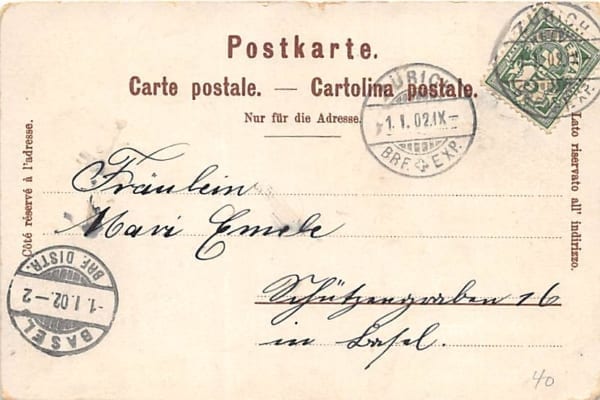 Postkarte.
Carte postale. — Cartolina postale.
Nur für die Adresse.
Côté réservé à l'adresse.
Lato riservato all' indirizzo.
ZÜRICH
1.I.02.IX—
BRF. EXP.
ZÜRICH
EXP.
HELVETIA
Fräulein
Mari Emele
Schützengraben 16
in Basel.
BRF. DISTR.
-1.I.02.—2
BASEL
40